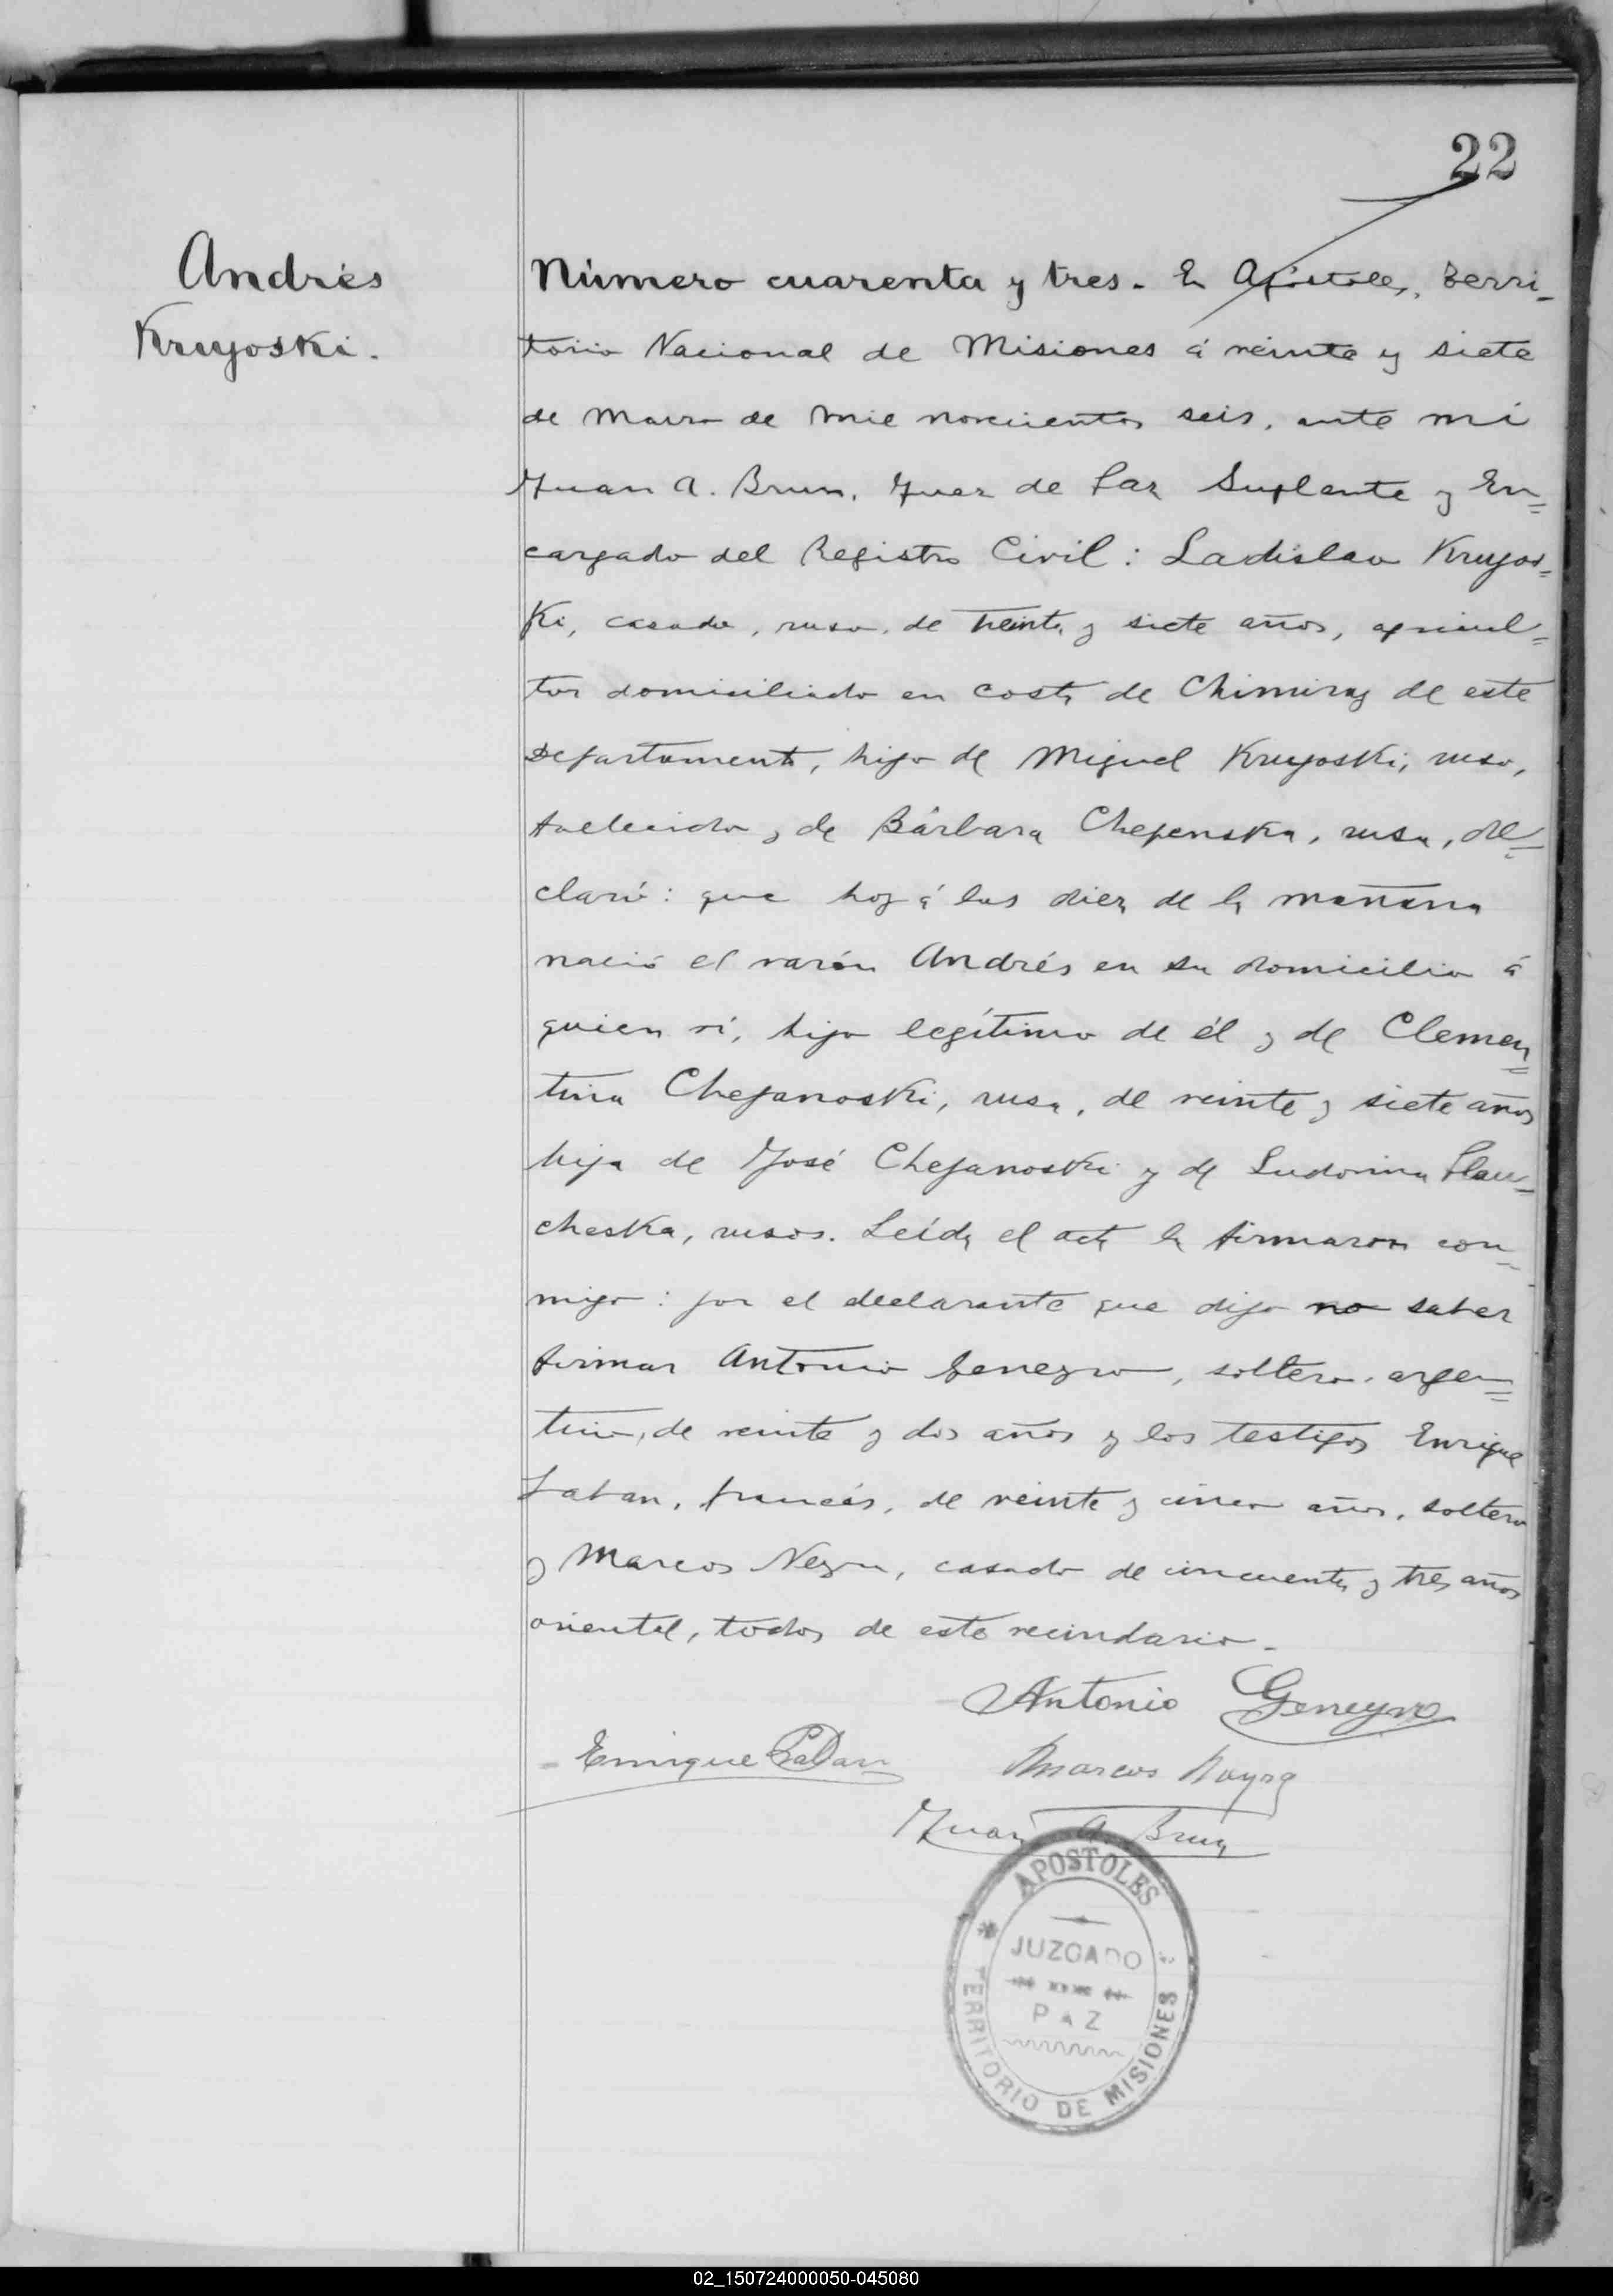 22
Andrés
Kruyoski.
Número cuarenta y tres. En Apóstoles, Terri-
torio Nacional de Misiones á veinte y siete
de Marzo de mil novecientos seis, ante mí
Juan A. Brun, Juez de Paz Suplente y En=
cargado del Registro Civil: Ladislao Kruyos=
ki, casado, ruso, de treinta y siete años, agricul=
tor domiciliado en costa de Chimiray de este
Departamento, hijo de Miguel Kruyoski, ruso,
fallecido y de Bárbara Chepenska, rusa, de=
claró: que hoy á las diez de la mañana
nació el varón Andrés en su domicilio á
quien ví, hijo legítimo de él y de Clemen=
tina Chepanoski, rusa, de veinte y siete años
hija de José Chepanoski y de Ludovina
cheska, rusos. Leída el acta la firmaron con-
migo: por el declarante que dijo no saber
firmar Antonio Geneyro, soltero, argen=
tino, de veinte y dos años y los testigos Enrique
Laban, francés, de veinte y cinco años, soltero
y Marcos Neyra, casado de cincuenta y tres años
oriental, todos de este vecindario.
Antonio Geneyro
Enrique Laban
Marcos Nayra
Juan A. Brun
APOSTOLES
JUZGADO
PAZ
TERRITORIO DE MISIONES
02_150724000050-045080